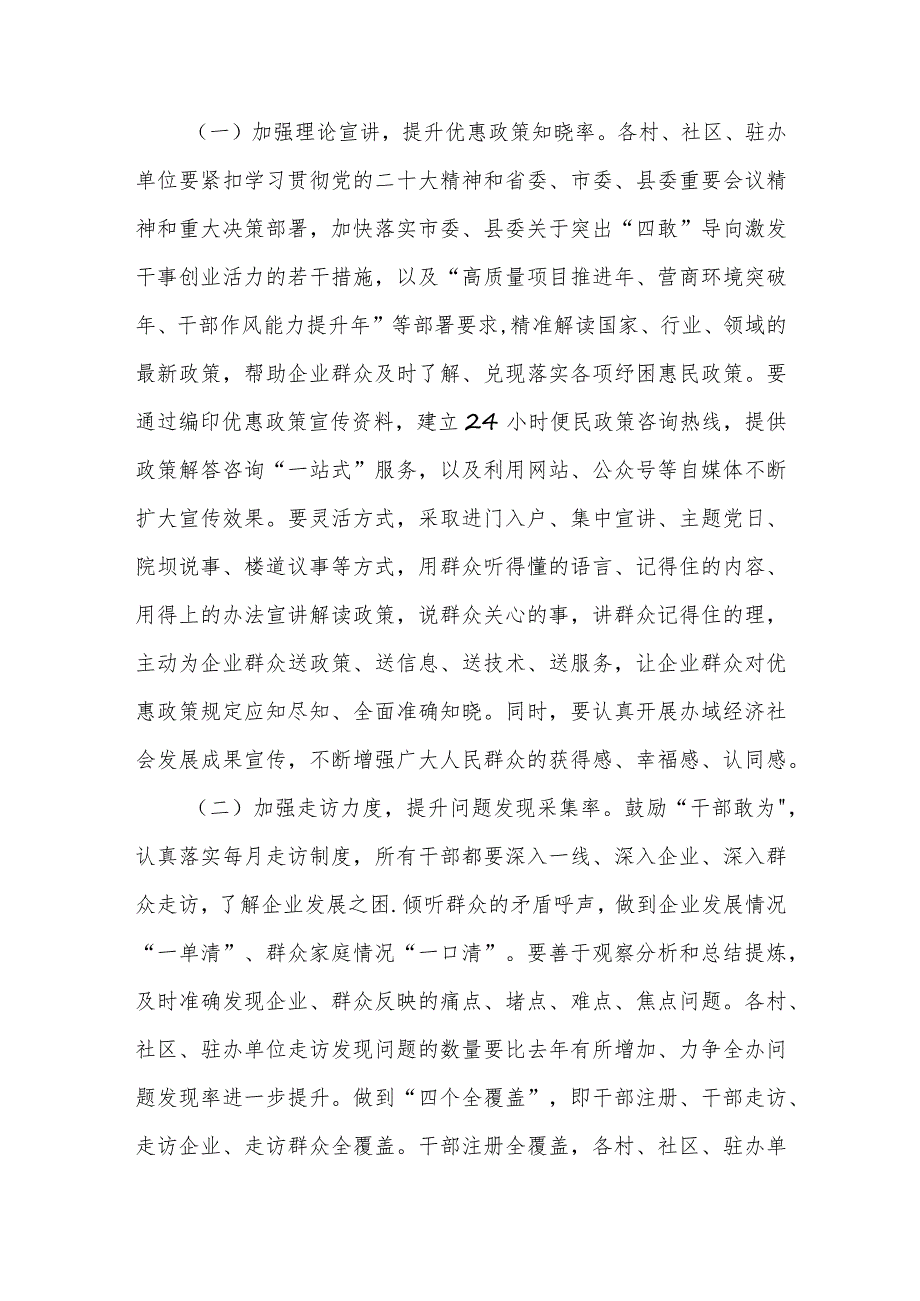 （一）加强理论宣讲，提升优惠政策知晓率。各村、社区、驻办
单位要紧扣学习贯彻党的二十大精神和省委、市委、县委重要会议精
神和重大决策部署，加快落实市委、县委关于突出“四敢”导向激发
干事创业活力的若干措施，以及“高质量项目推进年、营商环境突破
年、干部作风能力提升年”等部署要求,精准解读国家、行业、领域的
最新政策，帮助企业群众及时了解、兑现落实各项纾困惠民政策。要
通过编印优惠政策宣传资料，建立24小时便民政策咨询热线，提供
政策解答咨询“一站式”服务，以及利用网站、公众号等自媒体不断
扩大宣传效果。要灵活方式，采取进门入户、集中宣讲、主题党日、
院坝说事、楼道议事等方式，用群众听得懂的语言、记得住的内容、
用得上的办法宣讲解读政策，说群众关心的事，讲群众记得住的理，
主动为企业群众送政策、送信息、送技术、送服务，让企业群众对优
惠政策规定应知尽知、全面准确知晓。同时，要认真开展办域经济社
会发展成果宣传，不断增强广大人民群众的获得感、幸福感、认同感。
（二）加强走访力度，提升问题发现采集率。鼓励“干部敢为"，
认真落实每月走访制度，所有干部都要深入一线、深入企业、深入群
众走访，了解企业发展之困.倾听群众的矛盾呼声，做到企业发展情况
“一单清”、群众家庭情况“一口清”。要善于观察分析和总结提炼，
及时准确发现企业、群众反映的痛点、堵点、难点、焦点问题。各村、
社区、驻办单位走访发现问题的数量要比去年有所增加、力争全办问
题发现率进一步提升。做到“四个全覆盖”，即干部注册、干部走访、
走访企业、走访群众全覆盖。干部注册全覆盖，各村、社区、驻办单